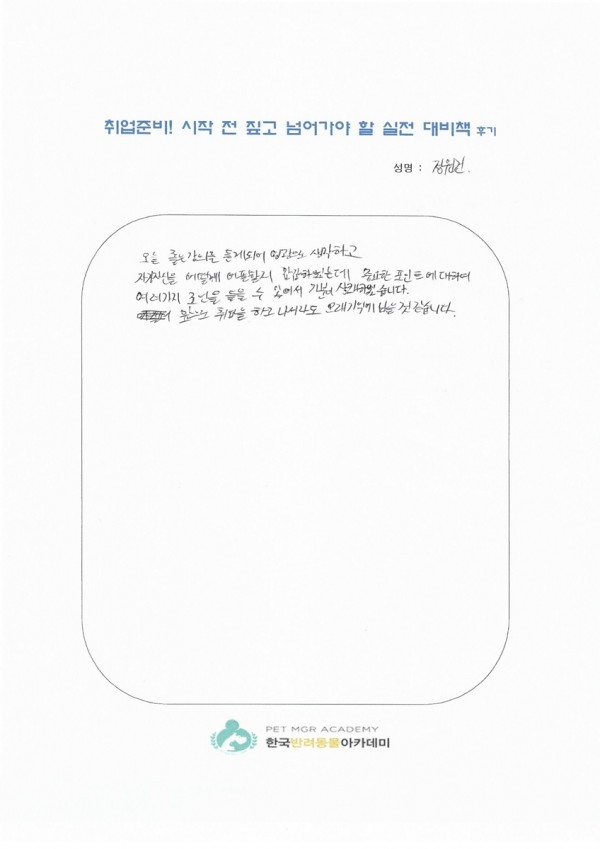 취업준비! 시작 전 짚고 넘어가야 할 실전 대비책 후기
성명 : 정원진.
오늘 좋은강의를 듣게되어 영광으로 생각하고
자기자신을 어떻게 어필할지 암감하였는데 중요한 포인트에 대하여
여러가지 조언을 들을 수 있어서 기분이 상쾌하였습니다.
앞으로 취업을 하고 나서라도 오래기억에 남는 것 같습니다.
PET MGR ACADEMY
한국반려동물아카데미